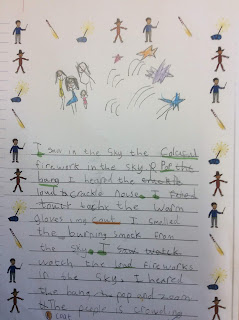 I san in the sky the Colarful
firework in the sky & Put the
bang I heared the crackle
loud & crackle nouse I
touck the Warm
gloves my Coat I smelled
the burning smock from
the sky I saw watch
watch the lood fireworks
in the sky I heared
the bang to pop and zoom
The people is crowding